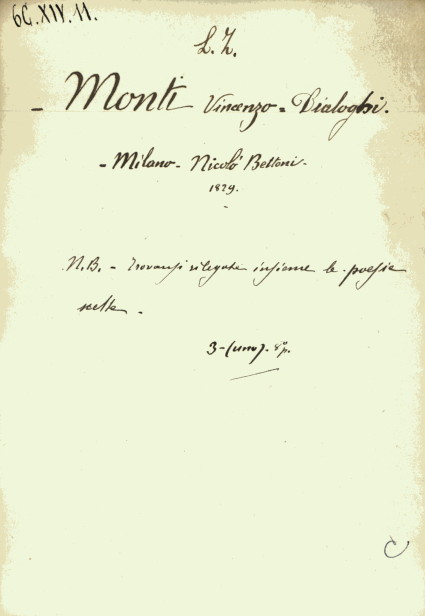 6C.XIV.11.
L.Z.
- Monti Vincenzo = Dialoghi.
- Milano - Nicolò Bettoni -
1829.
-
N.B. - Trovansi rilegate insieme le poesie
scelte -
3 - (uno). 8º p.
C